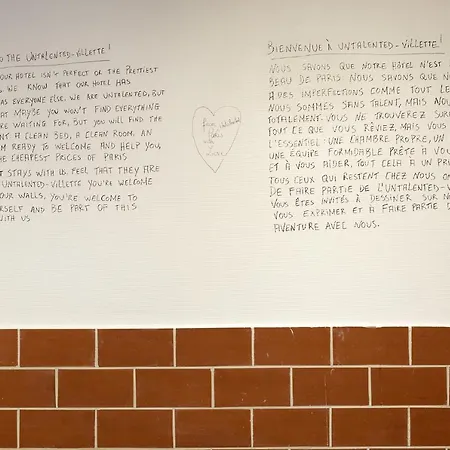 O THE UNTALENTED-VILLETTE!
OUR HOTEL ISN'T PERFECT OR THE PRETTIEST
WE KNOW THAT OUR HOTEL HAS
AS EVERYONE ELSE. WE ARE UNTALENTED, BUT
AT MAYBE YOU WON'T FIND EVERYTHING
RE WAITING FOR, BUT YOU WILL FIND THE
NT A CLEAN BED, A CLEAN ROOM. AN
M READY TO WELCOME AND HELP YOU,
HE CHEAPEST PRICES OF PARIS
T STAYS WITH US FEEL THAT THEY ARE
UNTALENTED-VILLETTE YOU'RE WELCOME
OUR WALLS. YOU'RE WELCOME TO
RSELF AND BE PART OF THIS
WITH US
From
Paris
with
Love
BIENVENUE À UNTALENTED-VILLETTE!
NOUS SAVONS QUE NOTRE HÔTEL N'EST
BEAU DE PARIS. NOUS SAVONS QUE NO
A DES IMPERFECTIONS COMME TOUT LE
NOUS SOMMES SANS TALENT, MAIS NOU
TOTALEMENT. VOUS NE TROUVEREZ SUR
TOUT CE QUE VOUS RÊVIEZ, MAIS VOUS
L'ESSENTIEL: UNE CHAMBRE PROPRE, UN
UNE ÉQUIPE FORMIDABLE PRÊTE A VOU
ET À VOUS AIDER, TOUT CELA A UN PRI
TOUS CEUX QUI RESTENT CHEZ NOUS
DE FAIRE PARTIE DE L'UNTALENTED-V
VOUS ÊTES INVITÉS À DESSINER SUR NO
VOUS EXPRIMER ET A FAIRE PARTIE D
AVENTURE AVEC NOUS.